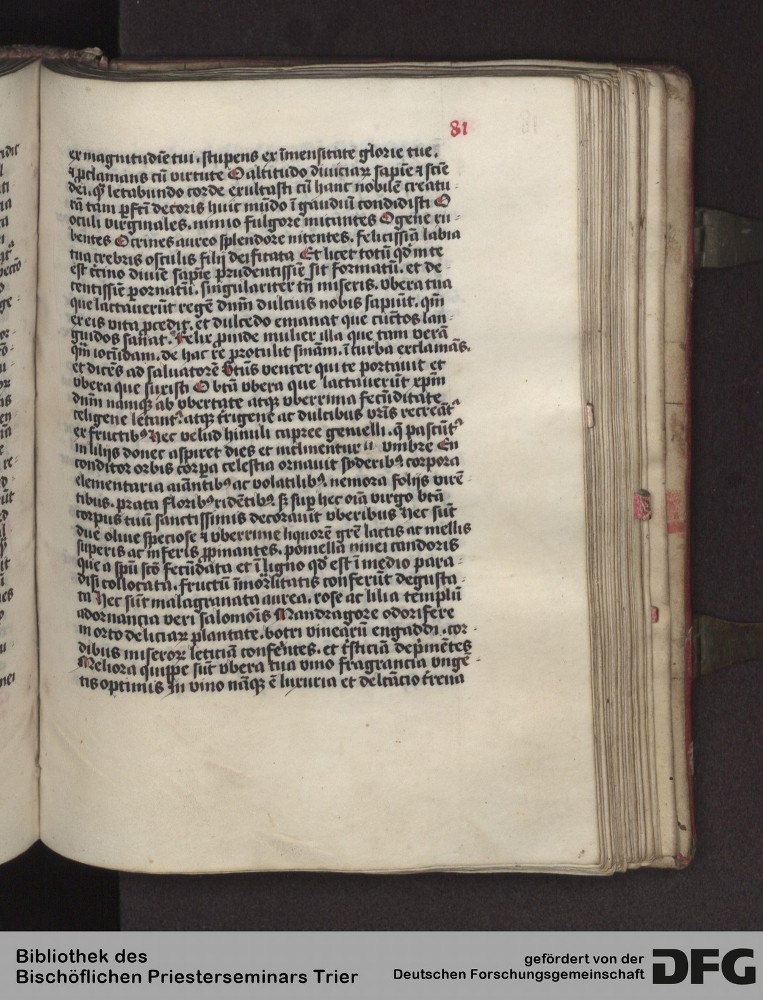 81
ex magnitudīe tui . stupens ex īmensitate glorie tue .
⁊ ꝓclamans cū virtute O altitudo diuiciaꝝ sapīe ⁊ scīe
dei . qͥ letabundo corde exultasti cū hanc nobilē creatu-
rā tam ꝑfctī decoris huic mūdo ī gaudiū condidisti O
oculi virginales . nimio fulgore micantes O gene ru-
bentes O crines aureo splendore nitentes . felicissīa labia
tua crebris osculis filij deificata Et licet totū qd̄ in te
est trino diuīe sapīe prudentissīe sit formatū . et de-
centissīe ꝑornatū . singulariter tn̄ miseris . vbera tua
que lactauerūt regē dnm̄ dulcius nobis sapiūt . qm̄
ex eis vita ꝓcedit . et dulcedo emanat que cūctos lan-
guidos sanat . Felix ꝓinde mulier illa que tam verā
qm̄ iocūdam . de hac re protulit sniam . ī turba exclamās .
et dicēs ad saluatorē Btūs venter qui te portauit et
vbera que suxisti O btā vbera que lactauerūt xpm̄
dnm̄ namqꝫ ab vbertate atqꝫ vberrima fecūditate
celigene letant᷑ . atqꝫ trigene ac dulcibus vr̄is recreāt᷑
ex fructibꝰ Hec velud hinuli capree gemelli . q̄ pascūt᷑
in lilijs donec aspiret dies et inclinentur vmbre En
conditor orbis corpa celestia ornauit syderibꝰ corpora
elementaria aīantibꝰ ac volatilibꝰ . nemora folijs virē-
tibus . prata floribꝰ ridētibꝰ sꝫ suꝑ hec oīa virgo btā
corpus tuū sanctissimis decorauit vberibus Hec sūt
due oliue speciose ⁊ vberrime liquorē grē lactis ac mellis
superis ac inferis ꝓpinantes . pomella niuei candoris
que a spū scō fecūdata et ī ligno qd̄ est ī medio para-
disi collocata . fructū īmortlitatis conferūt degusta-
ta Hec sūt malagranata aurea . rose ac lilia templū
adornancia veri salomōis Mandragore odorifere
in orto deliciaꝝ plantate . botri vinearū engaddi . cor-
dibus miseroꝝ leticiā conferētes . et tristiciā deprimētes
Meliora quippe sūt vbera tua vino fragrancia vnge-
tis optimis In vino nāqꝫ ē luxuria et delctācio frena
Bibliothek des
Bischöflichen Priesterseminars Trier
gefördert von der
Deutschen Forschungsgemeinschaft
DFG